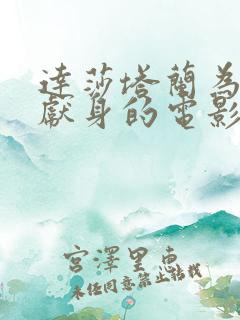 達莎塔蘭為
獻身的電影
宮澤里恵
未经同意禁止转载